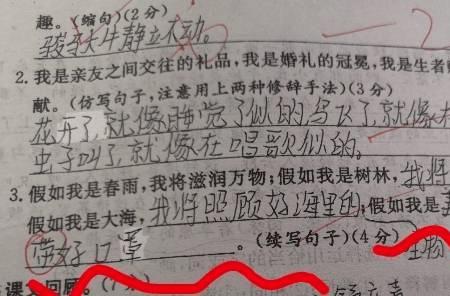 趣。(缩句)(2分)
骏马大牛静立不动。
2. 我是亲友之间交往的礼品,我是婚礼的冠冕,我是生者
献。(仿写句子,注意用上两种修辞手法)(3分)
花开了,就像睡觉了似的,鸟飞了,就像
虫子叫了,就像在唱歌似的。
3. 假如我是春雨,我将滋润万物;假如我是树林,我将
假如我是大海,我将照顾好海里的;假如我是
带好口罩。(续写句子)(4分)生物
课 回顾。(7分)